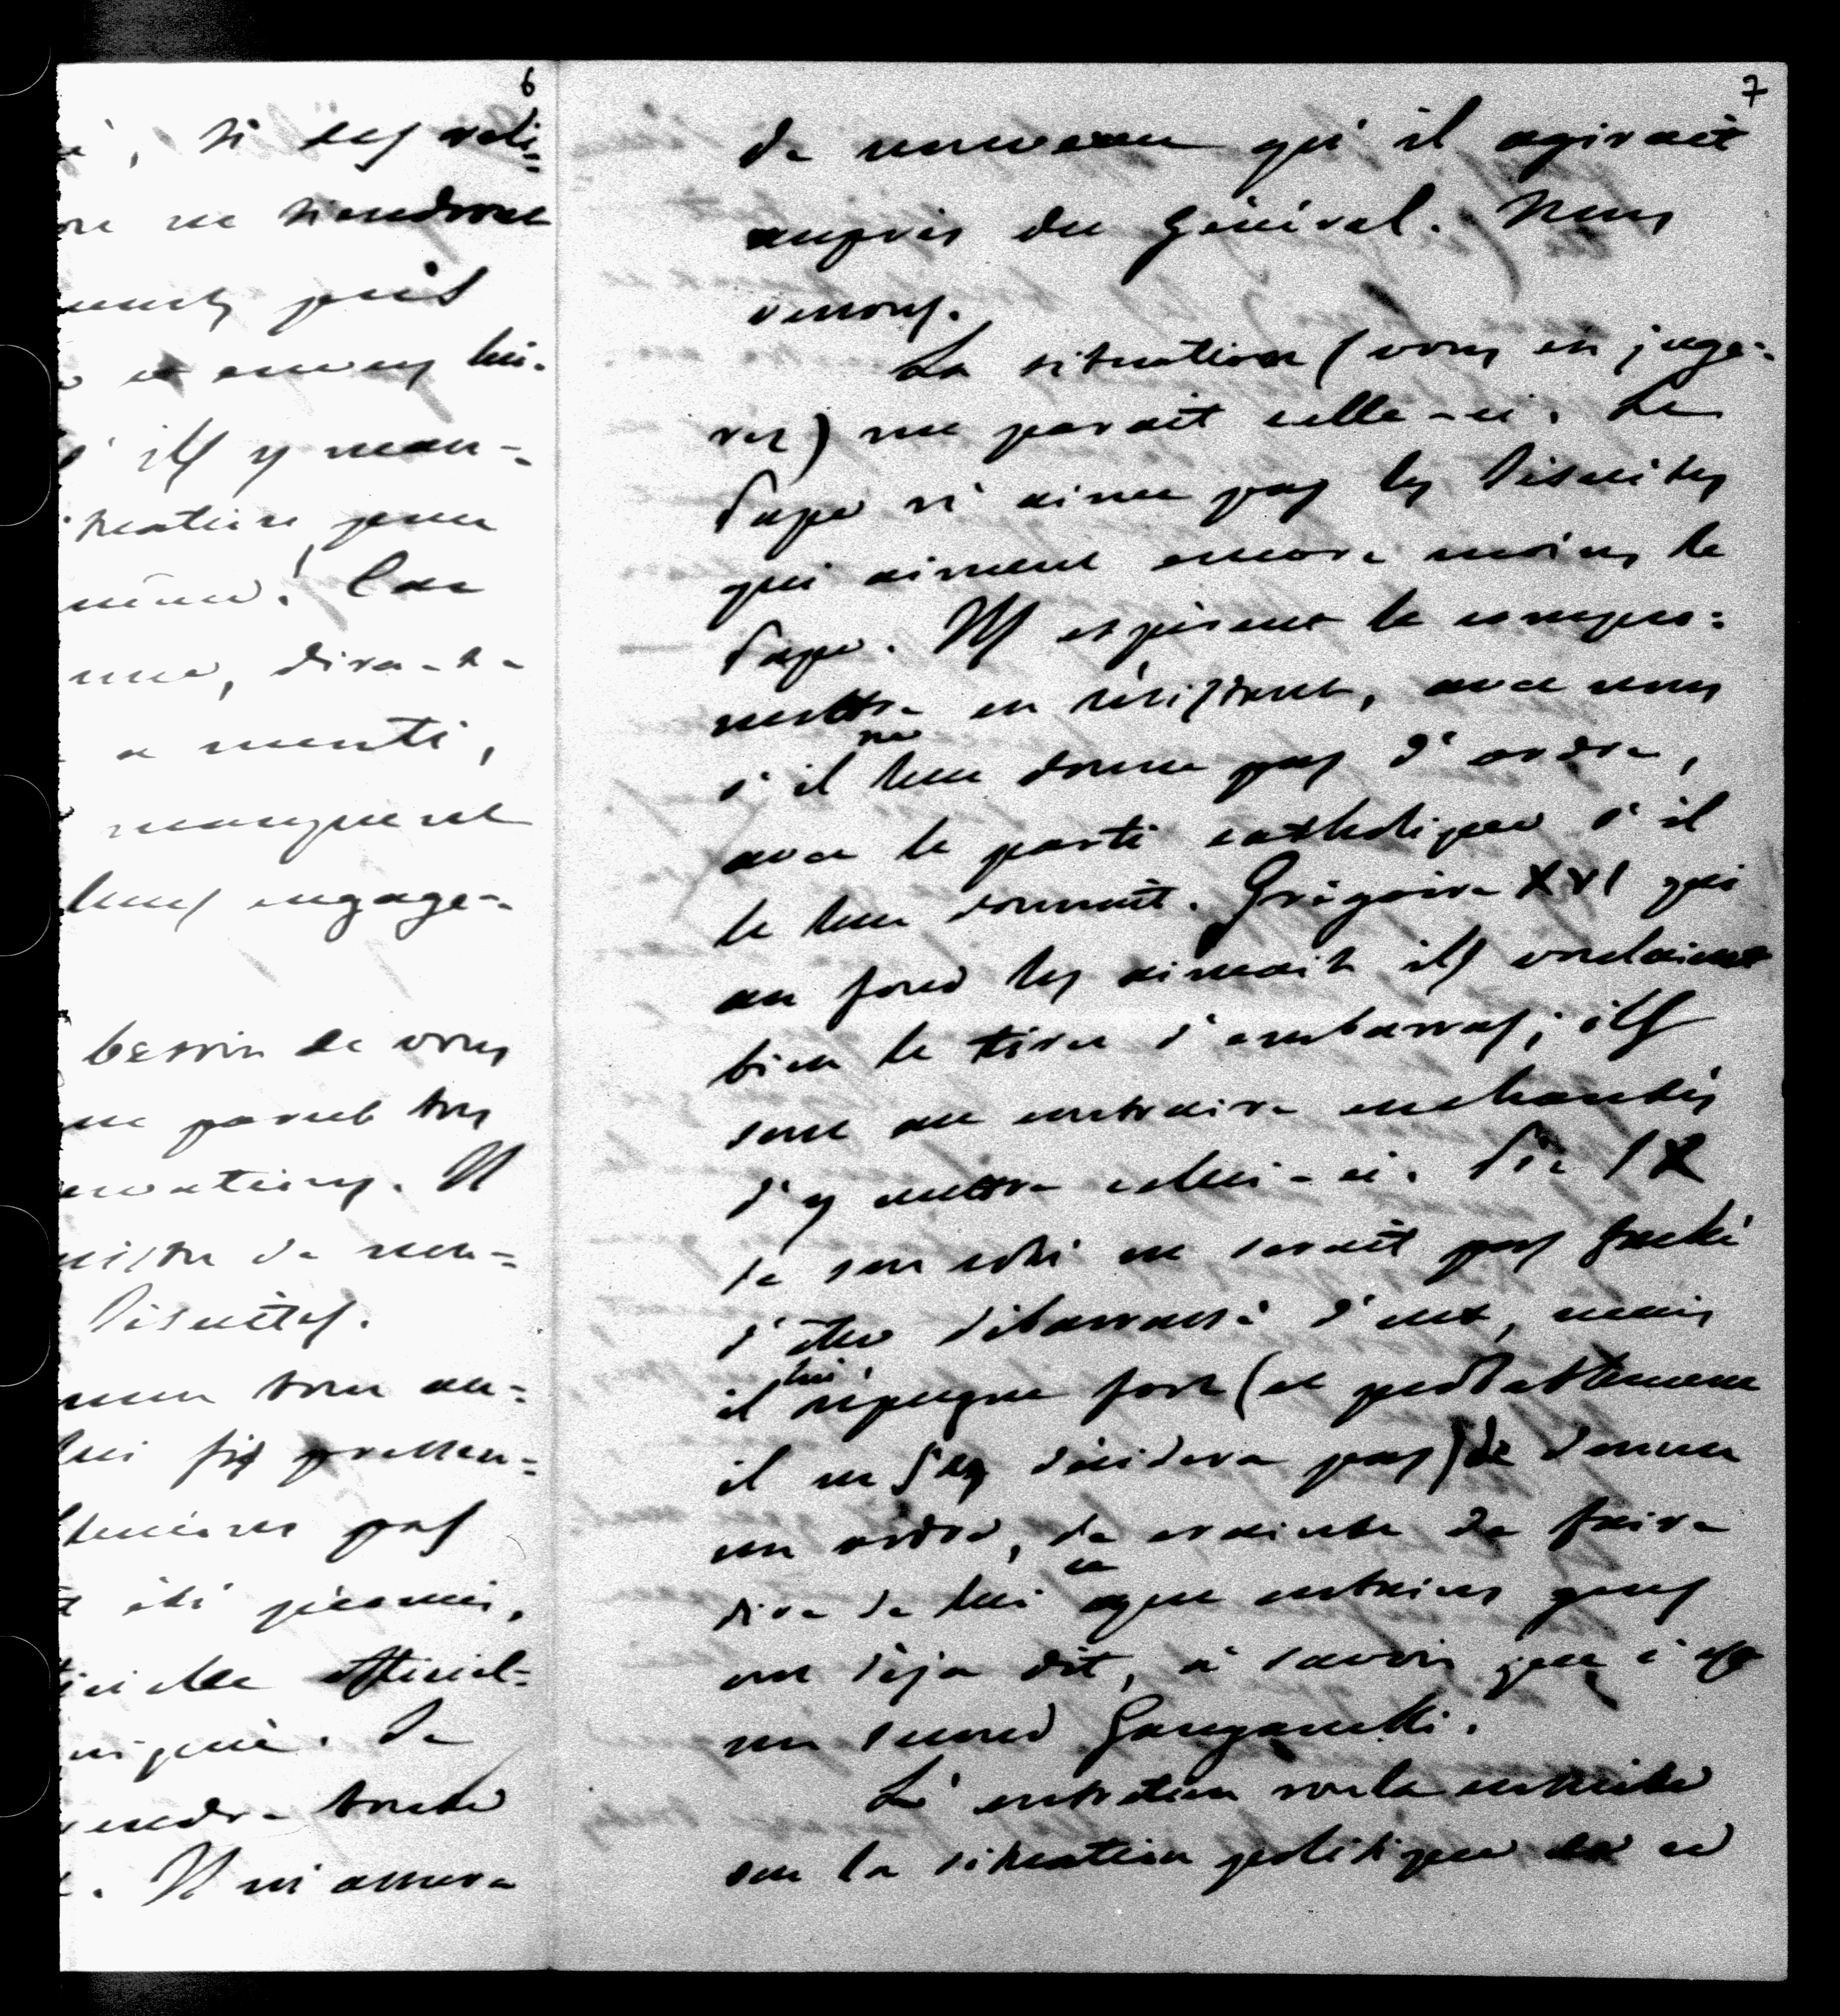 6
, si ces reli-
ne tiendront
et envers lui-
s'ils y man-
situation pour
même! Car
dira-t-
a menti,
manquent
leurs engage-
besoin de vous
me parut très
Il
de mon-
Jésuites.
pas
été promis,
officiel-
Je
toute
. Il m'assura
7
de nouveau qu'il agirait
auprès du Général. Nous
verrons.
La situation (vous en juge-
rez) me parait celle-ci. Le
Pape n'aime pas les Jésuites
qui aiment encore moins le
Pape. Ils espèrent le compro-
mettre en résistant, avec nous
s'il ne leur donne pas d'ordre,
avec le parti catholique s'il
le leur donnait. Grégoire XVI qui
au fond les aimait ils voulaient
bien le tirer d'embarras; ils
sont au contraire enchantés
d'y mettre celui-ci. Pie IX
de son côté ne serait pas faché
d'être débarrassé d'eux, mais
il lui répugne fort (et peut-être même
il ne s'y décidera pas) de donner
un ordre, de crainte de faire
dire de lui ce que certains gens
ont déja dit, à savoir que c'est
un second Ganganelli.
L'entretien roula ensuite
sur la situation politique de ce